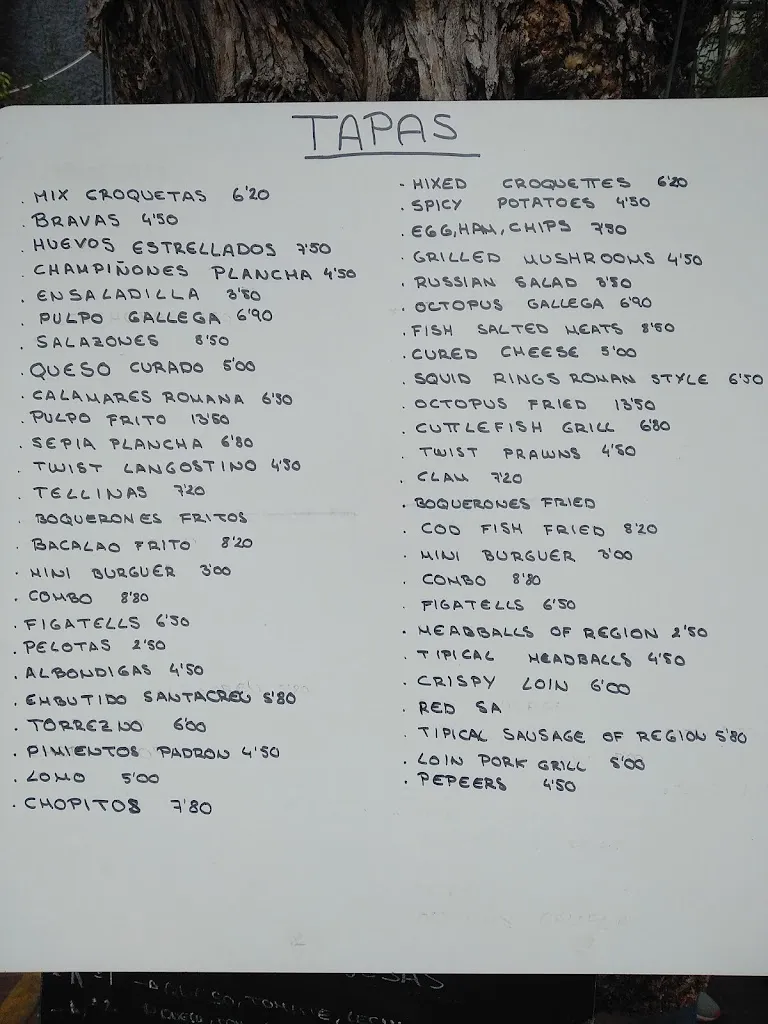 TAPAS
. MIX CROQUETAS 6'20
. BRAVAS 4'50
. HUEVOS ESTRELLADOS 7'50
. CHAMPIÑONES PLANCHA 4'50
. ENSALADILLA 3'80
. PULPO GALLEGA 6'90
. SALAZONES 8'50
. QUESO CURADO 5'00
. CALAMARES ROMANA 6'50
. PULPO FRITO 13'50
. SEPIA PLANCHA 6'80
. TWIST LANGOSTINO 4'50
. TELLINAS 7'20
. BOQUERONES FRITOS
. BACALAO FRITO 8'20
. MINI BURGUER 3'00
. COMBO 8'80
. FIGATELLS 6'50
. PELOTAS 2'50
. ALBONDIGAS 4'50
. EMBUTIDO SANTACREU 5'80
. TORREZNO 6'00
. PIMIENTOS PADRON 4'50
. LOMO 5'00
. CHOPITOS 7'80
- MIXED CROQUETTES 6'20
. SPICY POTATOES 4'50
. EGG, HAM, CHIPS 7'50
. GRILLED MUSHROOMS 4'50
. RUSSIAN SALAD 3'80
. OCTOPUS GALLEGA 6'90
. FISH SALTED MEATS 8'50
. CURED CHEESE 5'00
. SQUID RINGS ROMAN STYLE 6'50
. OCTOPUS FRIED 13'50
. CUTTLEFISH GRILL 6'80
. TWIST PRAWNS 4'50
. CLAM 7'20
. BOQUERONES FRIED
. COD FISH FRIED 8'20
. MINI BURGUER 3'00
. COMBO 8'80
. FIGATELLS 6'50
. MEADBALLS OF REGION 2'50
. TIPICAL MEADBALLS 4'50
. CRISPY LOIN 6'00
. RED SA
. TIPICAL SAUSAGE OF REGION 5'80
. LOIN PORK GRILL 5'00
. PEPEERS 4'50